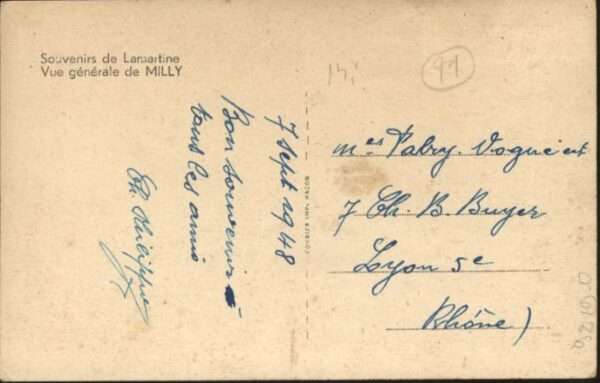 Souvenirs de Lamartine
Vue générale de MILLY
7 Sept 1948
Bon souvenir à
tous les amis
Ph. Philippe
99
mes Pabry. Voguë et
7 Ch. B. Buyer
Lyon 5e
Rhône)